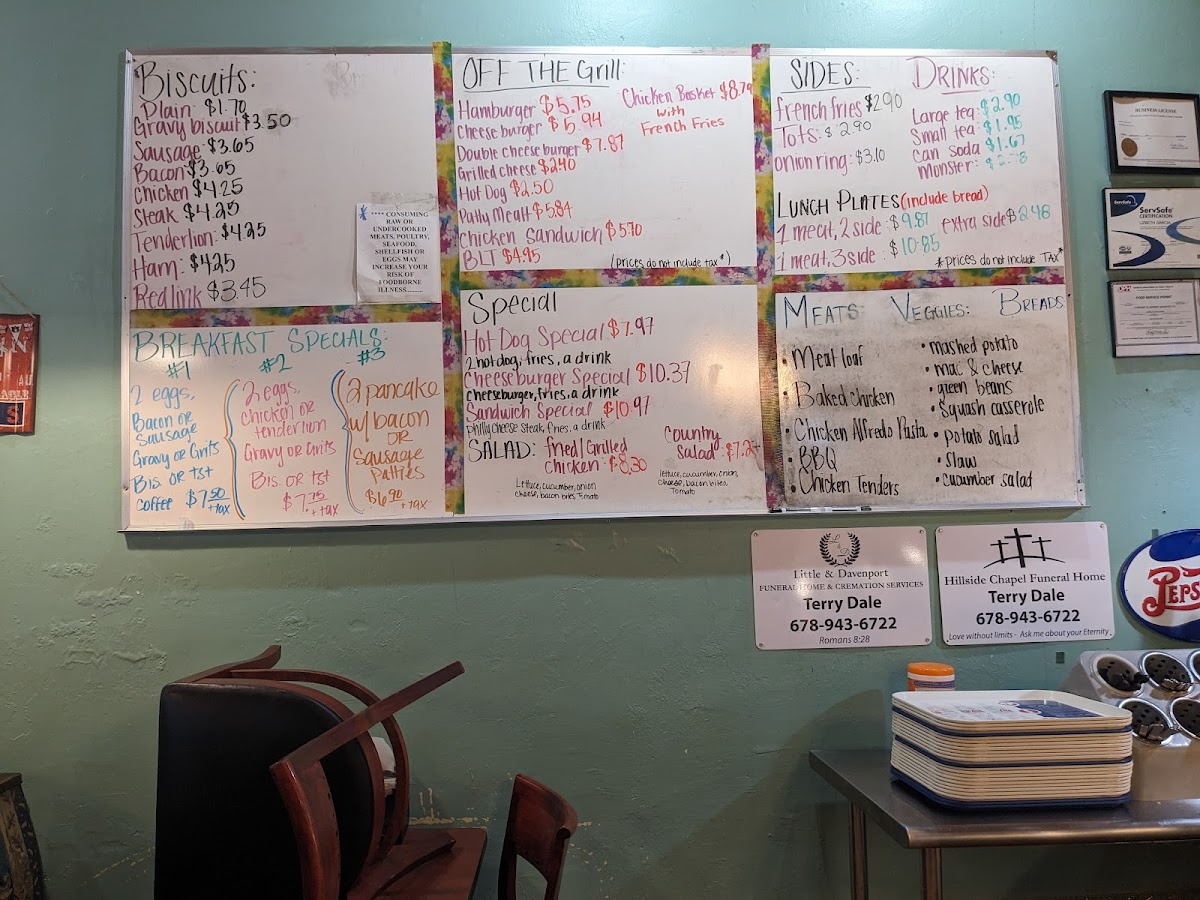 Biscuits:
Plain $1.70
Gravy biscuit $3.50
Sausage $3.65
Bacon $3.65
Chicken $4.25
Steak $4.25
Tenderlion: $4.25
Ham: $4.25
Redlink $3.45
**** CONSUMING
RAW OR
UNDERCOOKED
MEATS, POULTRY,
SEAFOOD,
SHELLFISH OR
EGGS MAY
INCREASE YOUR
RISK OF
FOODBORNE
ILLNESS.........
BREAKFAST SPECIALS:
#1
2 eggs,
Bacon or
Sausage
Gravy or Grits
Bis. or tst
coffee $7.50 +tax
#2
2 eggs,
chicken or
tenderlion
Gravy or Grits
Bis. or tst
$7.75 +tax
#3
2 pancake
w/ bacon
or
Sausage
Patties
$6.90 +tax
OFF THE Grill:
Hamburger $5.75
Cheeseburger $5.94
Double cheeseburger $7.87
Grilled cheese $2.40
Hot Dog $2.50
Patty Mealt $5.84
Chicken Sandwich $5.70
BLT $4.95
Chicken Basket $8.79
with
French Fries
(prices do not include tax*)
Special
Hot Dog Special $7.97
2 hotdog, fries, a drink
Cheeseburger Special $10.37
cheeseburger, fries, a drink
Sandwich Special $10.97
philly cheese steak, fries, a drink
SALAD: fried/Grilled
chicken: $8.30
Lettuce, cucumber, onion
cheese, bacon bites Tomato
Country
Salad: $7.25
lettuce, cucumber, onion,
cheese, bacon bites,
Tomato
SIDES:
french fries $2.90
Tots: $2.90
onion ring: $3.10
DRINKS:
Large tea: $2.90
Small tea: $1.95
can soda $1.67
monster:
LUNCH PLATES (include bread)
1 meat, 2 side: $9.87 extra side $2.48
1 meat, 3 side: $10.85
*prices do not include TAX*
MEATS: VEGGIES: BREADS
• Meat loaf
• Baked chicken
• Chicken Alfredo Pasta
• BBQ
• Chicken Tenders
• mashed potato
• mac & cheese
• green beans
• Squash casserole
• potato salad
• slaw
• cucumber salad
BUSINESS LICENSE
ServSafe
CERTIFICATION
Little & Davenport
FUNERAL HOME & CREMATION SERVICES
Terry Dale
678-943-6722
Romans 8:28
Hillside Chapel Funeral Home
Terry Dale
678-943-6722
Love without limits - Ask me about your Eternity
PEPS